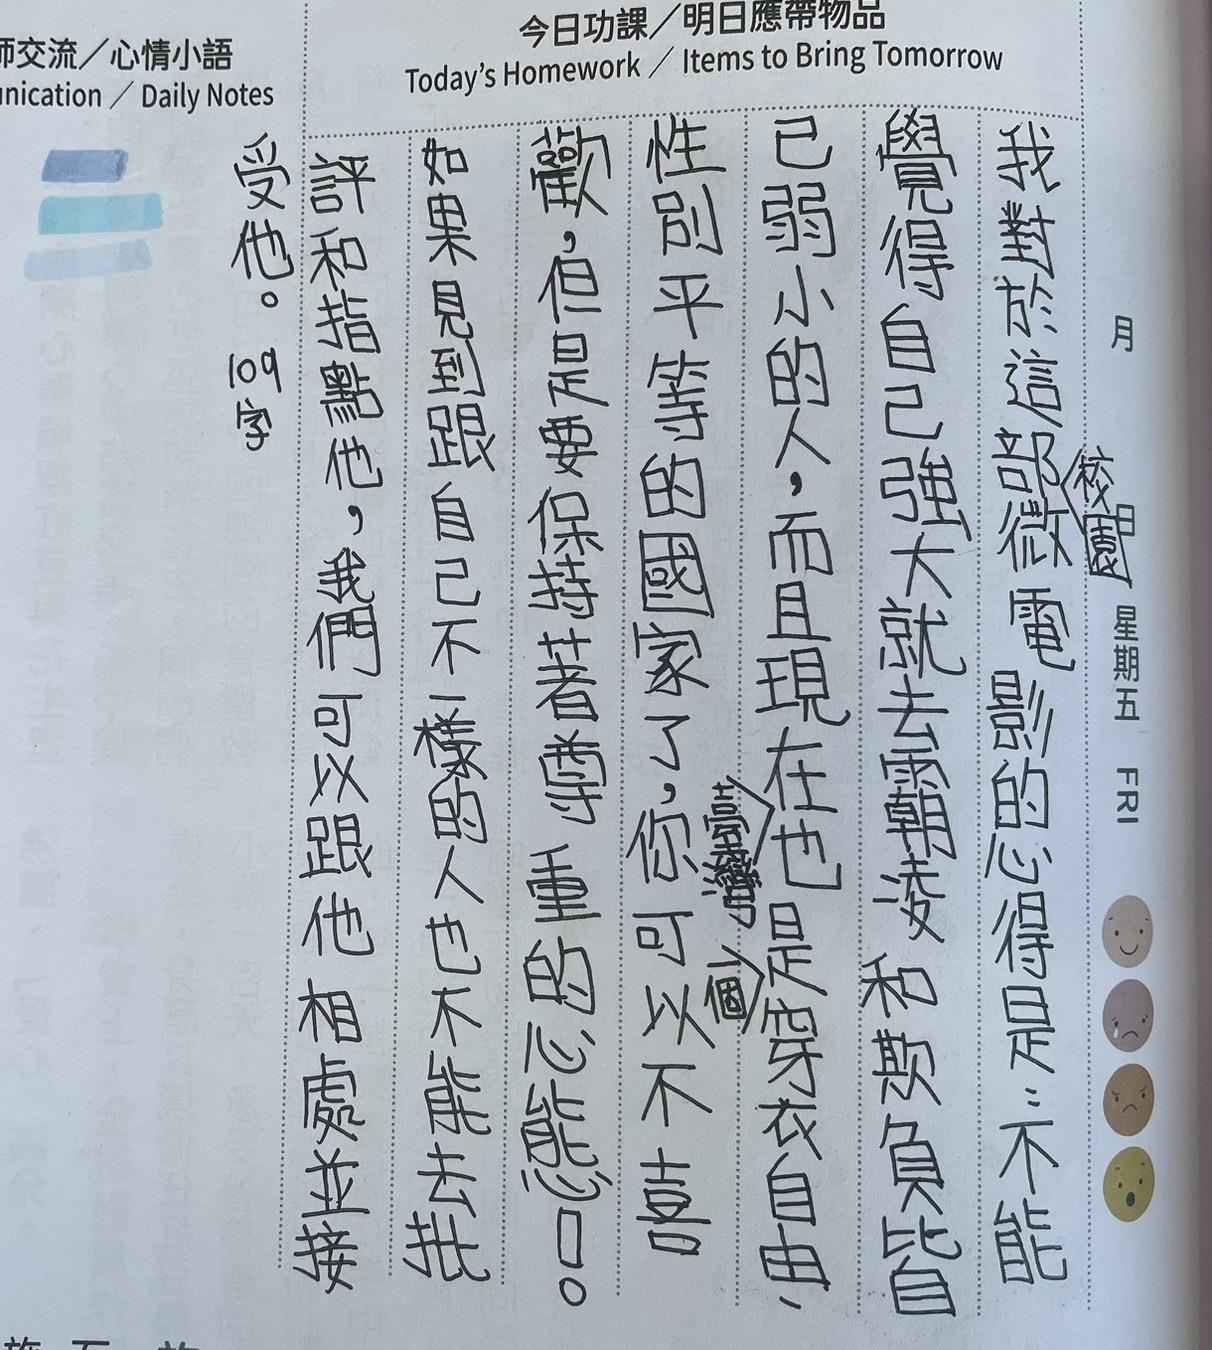 今日功課／明日應帶物品
Today's Homework ／ Items to Bring Tomorrow
師交流／心情小語
unication ／ Daily Notes
月
日
星期五 FRI
我對於這部微電影的心得是：不能
校園
覺得自己強大就去霸凌和欺負比自
己弱小的人，而且現在也是穿衣自由、
臺灣
個
性別平等的國家了，你可以不喜
歡，但是要保持著尊重的心態！。
如果見到跟自己不一樣的人也不能去批
評和指點他，我們可以跟他相處並接
受他。
109字